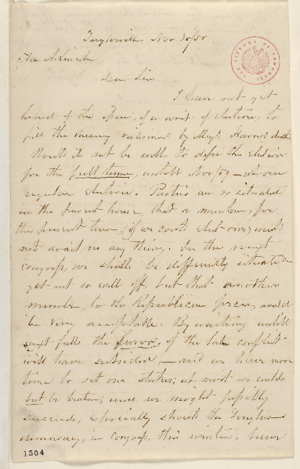 Taylorville Nov 30/58
Hon A. Lincoln
Dear Sir
I have not yet
heard of the Issue, of a writ of election, to
fill the vacancy occasioned by Maj. Harris' death
Would it not be well to defer the election
for the full time, until Nov/59 - our
regular election. Parties are so situated
in the present house, that a member, for
the present term (if we could elect one) would
not avail us any thing. In the next
congress, we shall be differently situated
yet not so well off, but that another
member, to the Republican force, would
be very acceptable. By waiting until
next fall the furor of the late conflict
will have subsided - and we have more
time to set our stakes; at most we could
but be beaten; and we might possibly
succeed, especially should the Douglas
democracy, in congress, this winter, have
1504